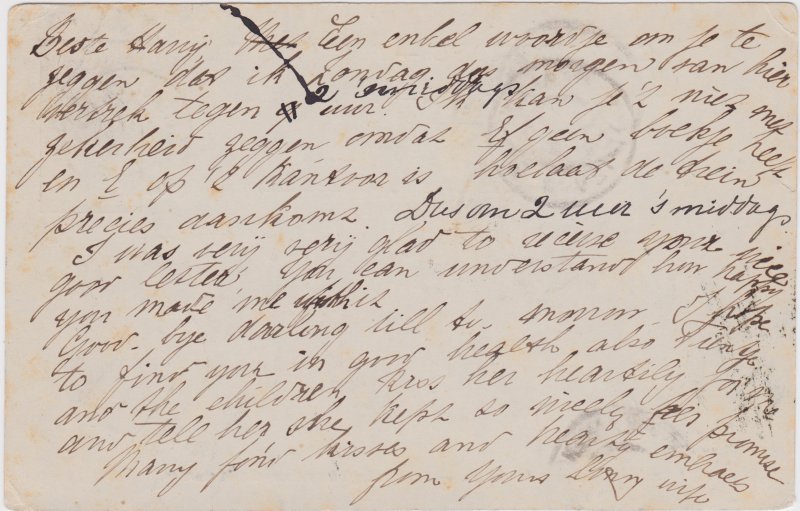 Beste Harry Een enkel woordje om je te
zeggen dat ik Zondag morgen van hier
vertrek tegen 2 uur. smiddags Ik kan je 't niet met
zekerheid zeggen omdat E geen boekje heeft
en E op 't Kantoor is hoelaat de trein
precies aankomt. Dus om 2 uur 's middags.
I was very very glad to receive your nice
good letter you can understand how happy
you made me with it
Good-bye darling till to morrow. I hope
to find you in good health also
and the children kiss her heartily for me
and tell her she kept so nicely her promise
Many fond kisses and hearty embraces
from yours loving wife